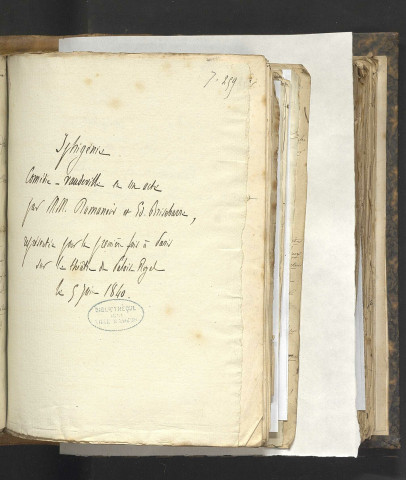 7-259
Iphigénie
Comédie-vaudeville en un acte
par MM. Dumanoir et Ed. Brisebarre,
représentée pour la première fois à Paris
sur le théâtre du Palais Royal
le 5 juin 1840.
BIBLIOTHÈQUE
VILLE